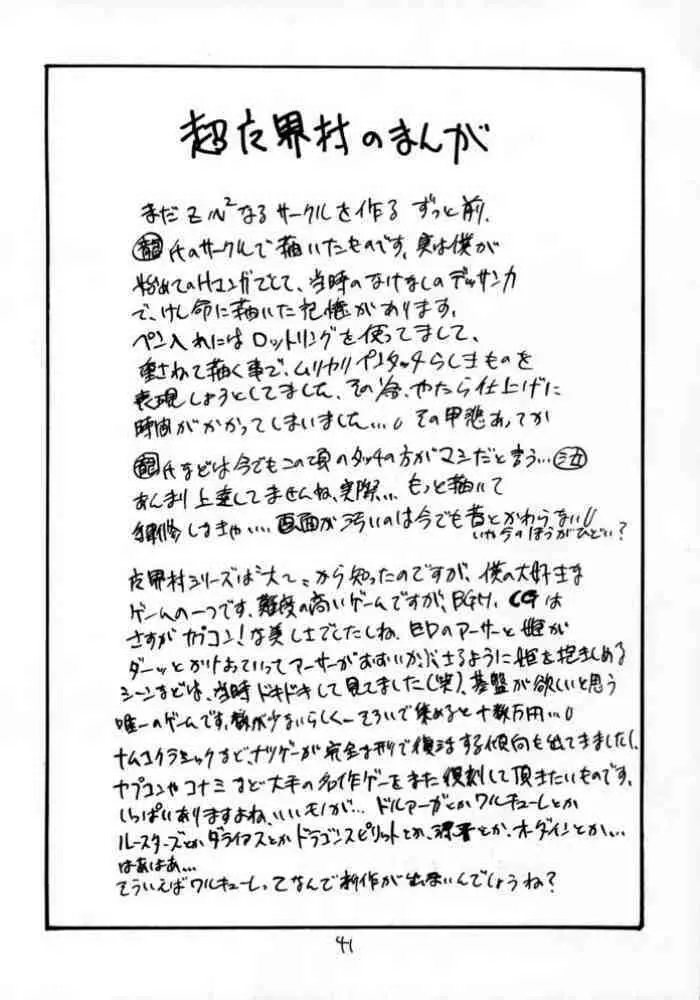 超魔界村のまんが
まだZN²なるサークルを作る ずっと前、
氏のサークルで描いたものです。実は僕が
始めてのHマンガでして、当時のなけなしのデッサン力
で、けん命に描いた記憶があります。
ペン入れにはロットリングを使ってまして、
重ねて描く事で、ムリヤリ ペンタッチらしきものを
表現しようとしてました。その分、やたら仕上げに
時間がかかってしまいました…。その甲斐あってか
氏などは今でもこの頃のタッチの方がマシだと言う…
あんまり上達してませんね、実際… もっと描いて
しなきゃ…。画面が汚いのは今でも昔とかわらない
いや今のほうがひどい?
魔界村シリーズは"大"から知ったのですが、僕の大好きな
ゲームの一つです。難度の高いゲームですが、BGM、CGは
さすがカプコン!な美しさでしたしね。EDのアーサーと姫が
ダーッとかけよっていってアーサーが
ように姫を抱きしめる
シーンなどは、当時ドキドキして見てました(笑)。基盤が欲しいと思う
唯一のゲームです。数が少ないらしくーそろいで集めると十数万円…
ナムコクラシックなど、ナツゲーが完全な形で復活する傾向も出てきましたし、
カプコンやコナミなど大手の名作ゲーをまた復刻して頂きたいものです。
いっぱいありますよね、いいモノが… ドルアーガとかワルキューレとか
ルースターズとかダライアスとかドラゴンスピリットとか、源平とか、オーダインとか…
はあはあ…
そういえばワルキューレってなんで新作が出ないんでしょうね?
41